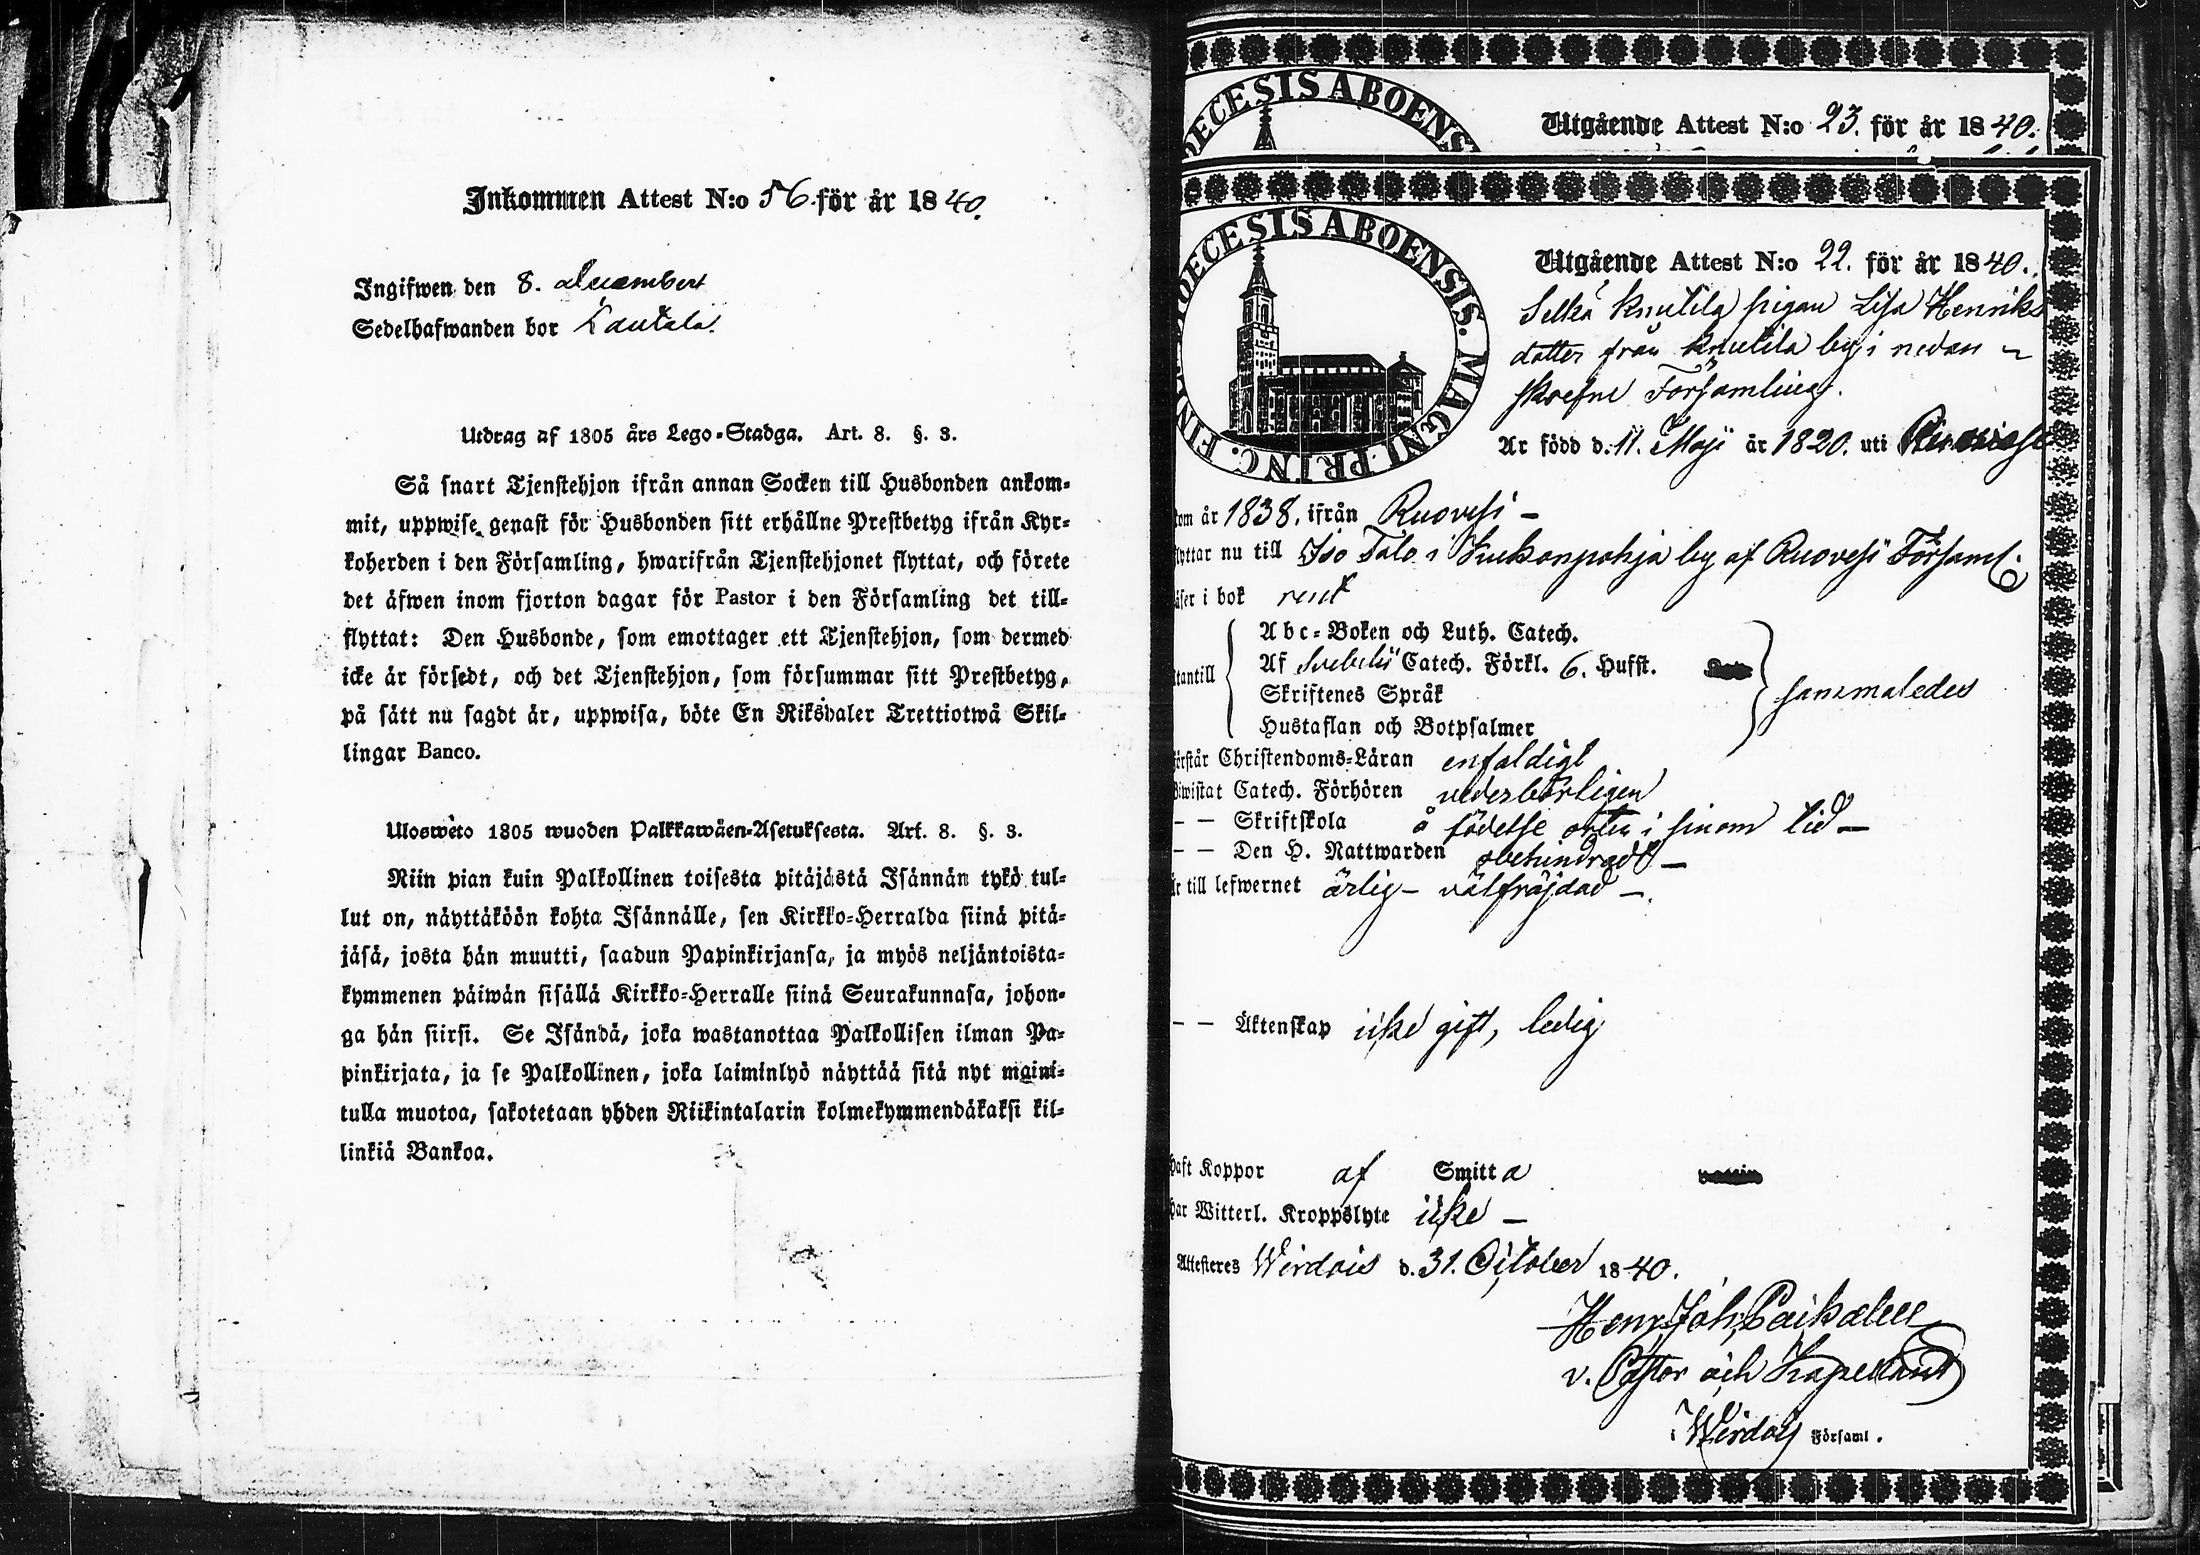 Inkommen Attest N:o 56. för år 1840.
Ingifwen den 8. december
Sedelhafwanden bor Kautala.
Utdrag af 1805 års Lego-Stadga. Art. 8. §. 3.
Så snart Tjenstehjon ifrån annan Socken till Husbonden ankom-
mit, uppwise genast för Husbonden sitt erhållne Prestbetyg ifrån Kyr-
koherden i den Församling, hwarifrån Tjenstehjonet flyttat, och förete
det äfwen inom fjorton dagar för Pastor i den Församling det till-
flyttat: Den Husbonde, som emottager ett Tjenstehjon, som dermed
icke är försedt, och det Tjenstehjon, som försummar sitt Prestbetyg,
på sätt nu sagdt är, uppwisa, böte En Riksdaler Trettiotwå Skil-
lingar Banco.
Uloswèto 1805 wuoden Palkkawäen-Asetuksesta. Art. 8. §. 3.
Niin pian kuin Palkollinen toisesta pitäjästä Isännän tykö tul-
lut on, näyttäköön kohta Isännälle, sen Kirkko-Herralda siinä pitä-
jäsä, josta hän muutti, saadun Papinkirjansa, ja myös neljäntoista-
kymmenen päiwän sisällä Kirkko-Herralle siinä Seurakunnasa, johon-
ga hän siirsi. Se Isändä, joka wastanottaa Palkollisen ilman Pa-
pinkirjata, ja se Palkollinen, joka laiminlyö näyttää sitä nyt maini-
tulla muotoa, sakotetaan yhden Riikintalarin kolmekymmendäkaksi kil-
linkiä Bankoa.
OECESIS ABOENS
Utgående Attest N:o 23. för år 1840.
OECESIS ABOENSIS. MAGNI PRINC. FIN
Utgående Attest N:o 22. för år 1840.
Knutila pigan Lisa Henriks
dotter från Knutila by i nedan
skrefne Församling.
Är född d. 11. Maji år 1820. uti Ruovesi
om år 1838. ifrån Ruovesi –
lyttar nu till Iso Talo i Kukonpohja by af Ruovesi Församl.
äser i bok rent
Abc-Boken och Luth. Catech.
tantill Af Svebelii Catech. Förkl. 6. Hufst.
Skriftenes Språk
Hustaflan och Botpsalmer
sammaledes
örstår Christendoms-Läran enfaldigt
iwistat Catech. Förhören vederbörligen
– – Skriftskola å födelse orten i sinom tid –
– – Den H. Nattwarden obehindradt –
r till lefwernet ärlig – välfräjdad –.
– – Äktenskap icke gift, ledig
haft Koppor af Smitta
har Witterl. Kroppslyte icke –
Attesteres Wirdois d. 31. October 1840.
Henr. Joh.
v. Pastor och Kapellant
i Wirdois Församl.